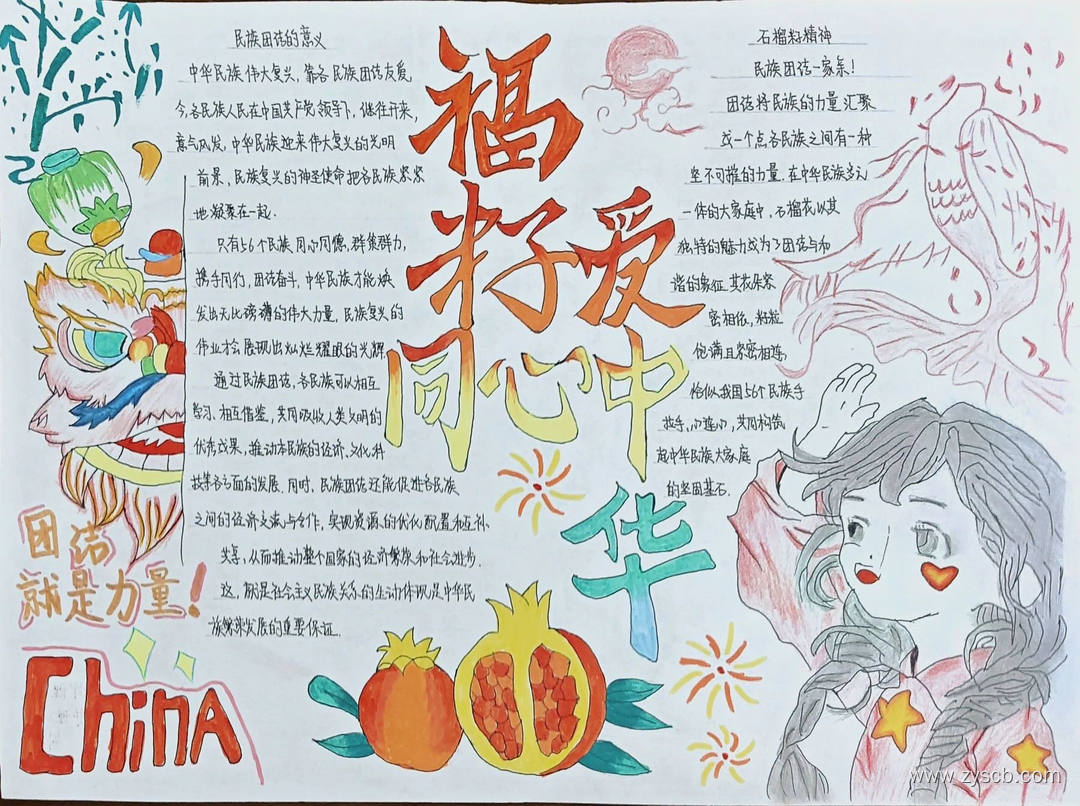 民族团结的意义
中华民族伟大复兴，靠各民族团结友爱，
今，各民族人民在中国共产党领导下，继往开来，
意气风发，中华民族迎来伟大复兴的光明
前景，民族复兴的神圣使命把各民族紧紧
地凝聚在一起．
只有56个民族同心同德，群策群力，
携手同行，团结奋斗，中华民族才能焕
发出无比磅礴的伟大力量，民族复兴的
伟业才会展现出灿烂耀眼的光辉
通过民族团结，各民族可以相互
学习、相互借鉴，共同吸收人类文明的
优秀成果，推动本民族的经济、文化、科
技等各方面的发展．同时，民族团结还能促进各民族
之间的经济交流与合作，实现资源的优化配置和互补
共享，从而推动整个国家的经济繁荣和社会进步．
这，就是社会主义民族关系的生动体现是中华民
族繁荣发展的重要保证．
福
籽 爱
同心中
华
石榴籽精神
民族团结一家亲！
团结将民族的力量汇聚
成一个点各民族之间有一种
坚不可摧的力量，在中华民族多元
一体的大家庭中，石榴花以其
独特的魅力成为了团结与和
谐的象征．其花朵紧
密相依，籽粒
饱满且紧密相连，
恰似我国56个民族手
拉手，心连心，共同构筑
起中华民族大家庭
的坚固基石．
团结
就是力量！
China
www.zyscb.com